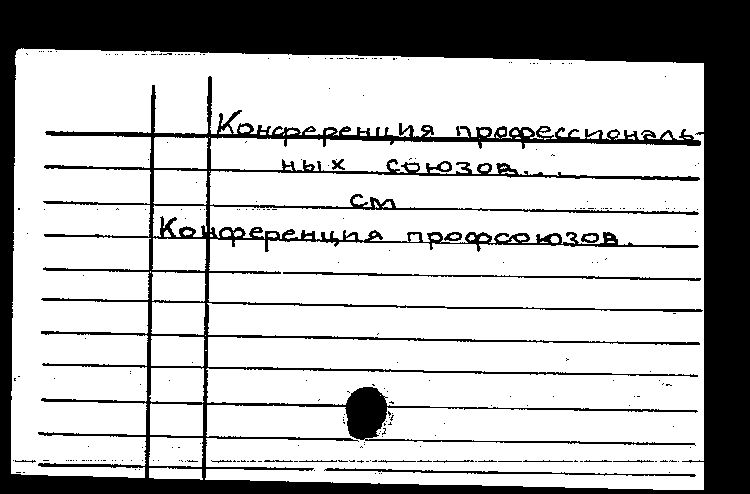 Конференция профессиональ-
ных союзов...
см
Конференция профсоюзов.